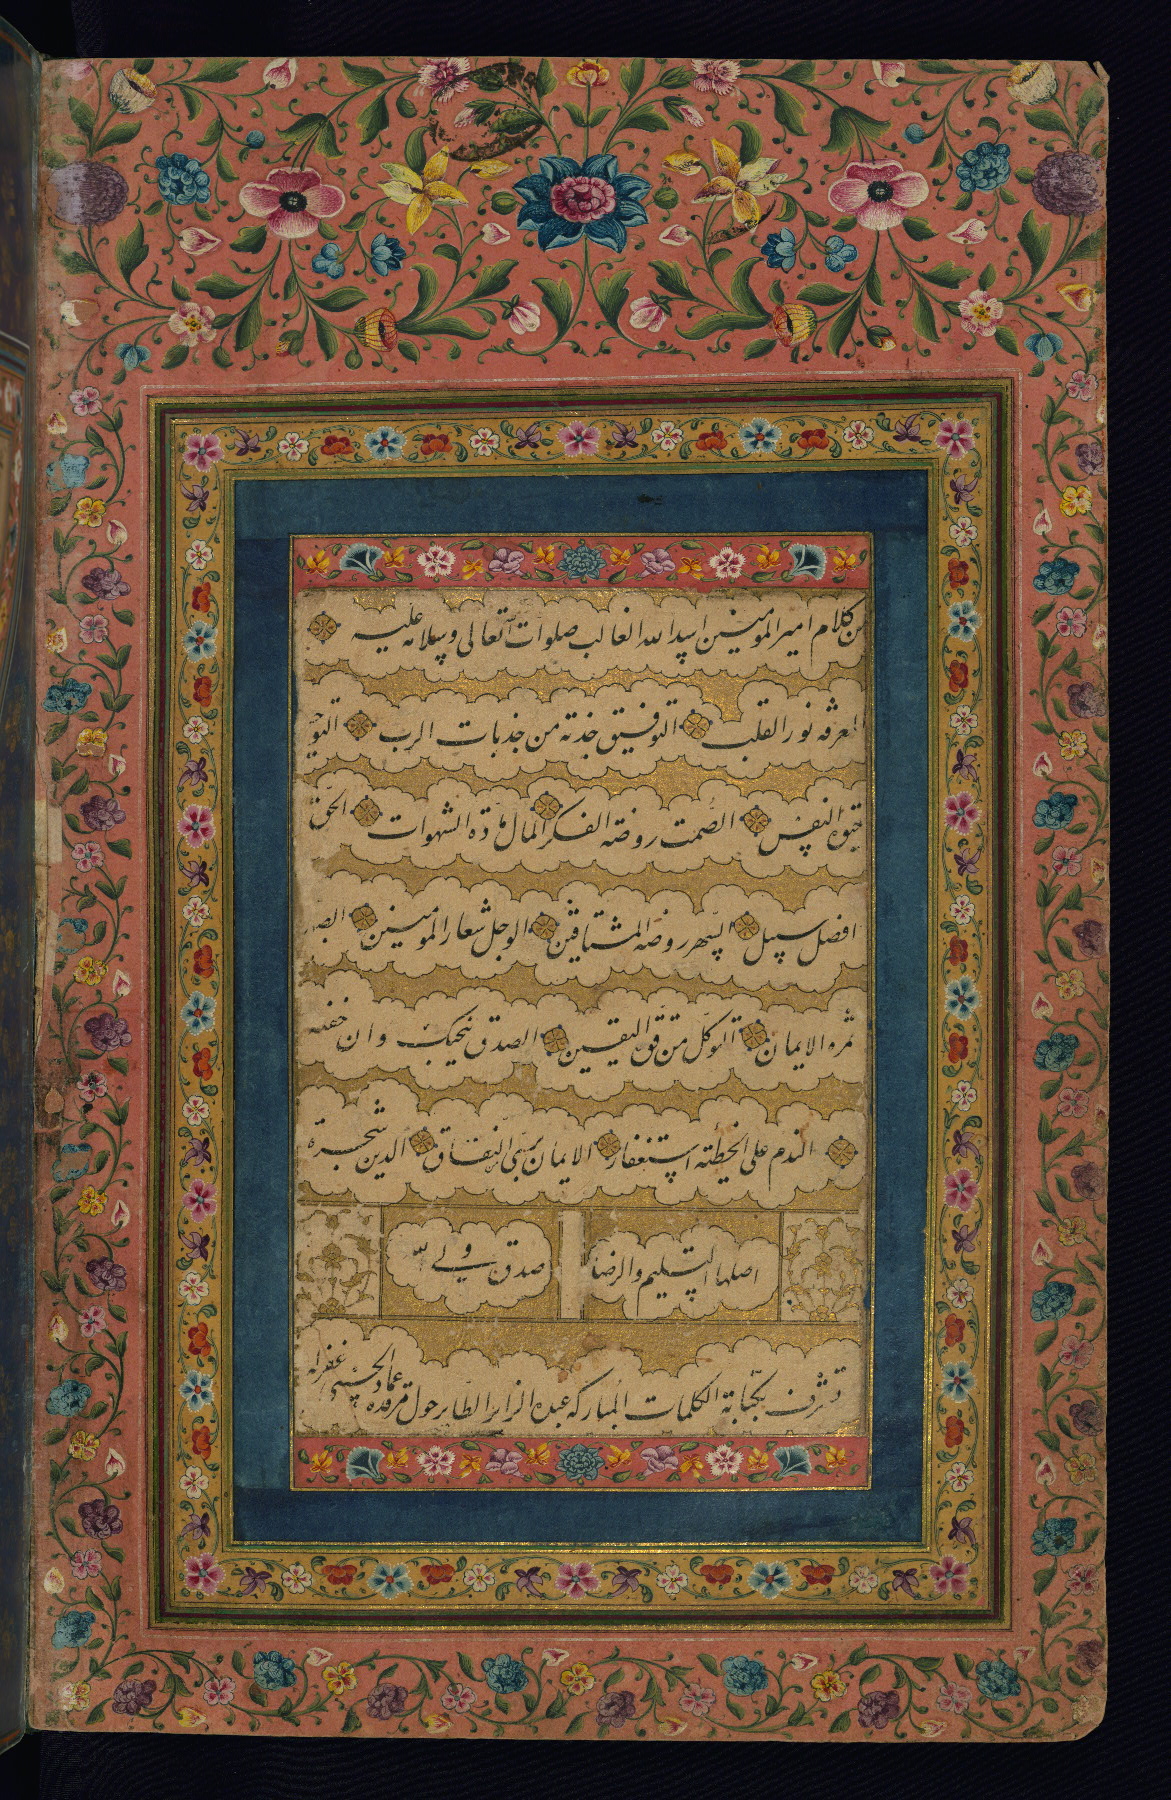 من كلام امير المومنين اسد الله الغالب صلوات الله تعالى وسلامه عليه
المعرفه نور القلب التوفيق جذبة من جذبات الرب التوحيد
حيوة النفس الصمت روضه الفكر المال مادة الشهوات الحق
افضل سبيل السهر روضه المشتاقين الوجل شعار المومنين الصبر
ثمره الايمان التوكل من قوة اليقين الصدق ينجيك وان خفته
الندم على الخطيئة استغفار الايمان برئ النفاق الدين شجرة
اصلها التسليم والرضا صدق ولي الله
تشرف بكتابة الكلمات المباركه عبده الزاير الطاير حول مرقده عماد الحسني غفر له